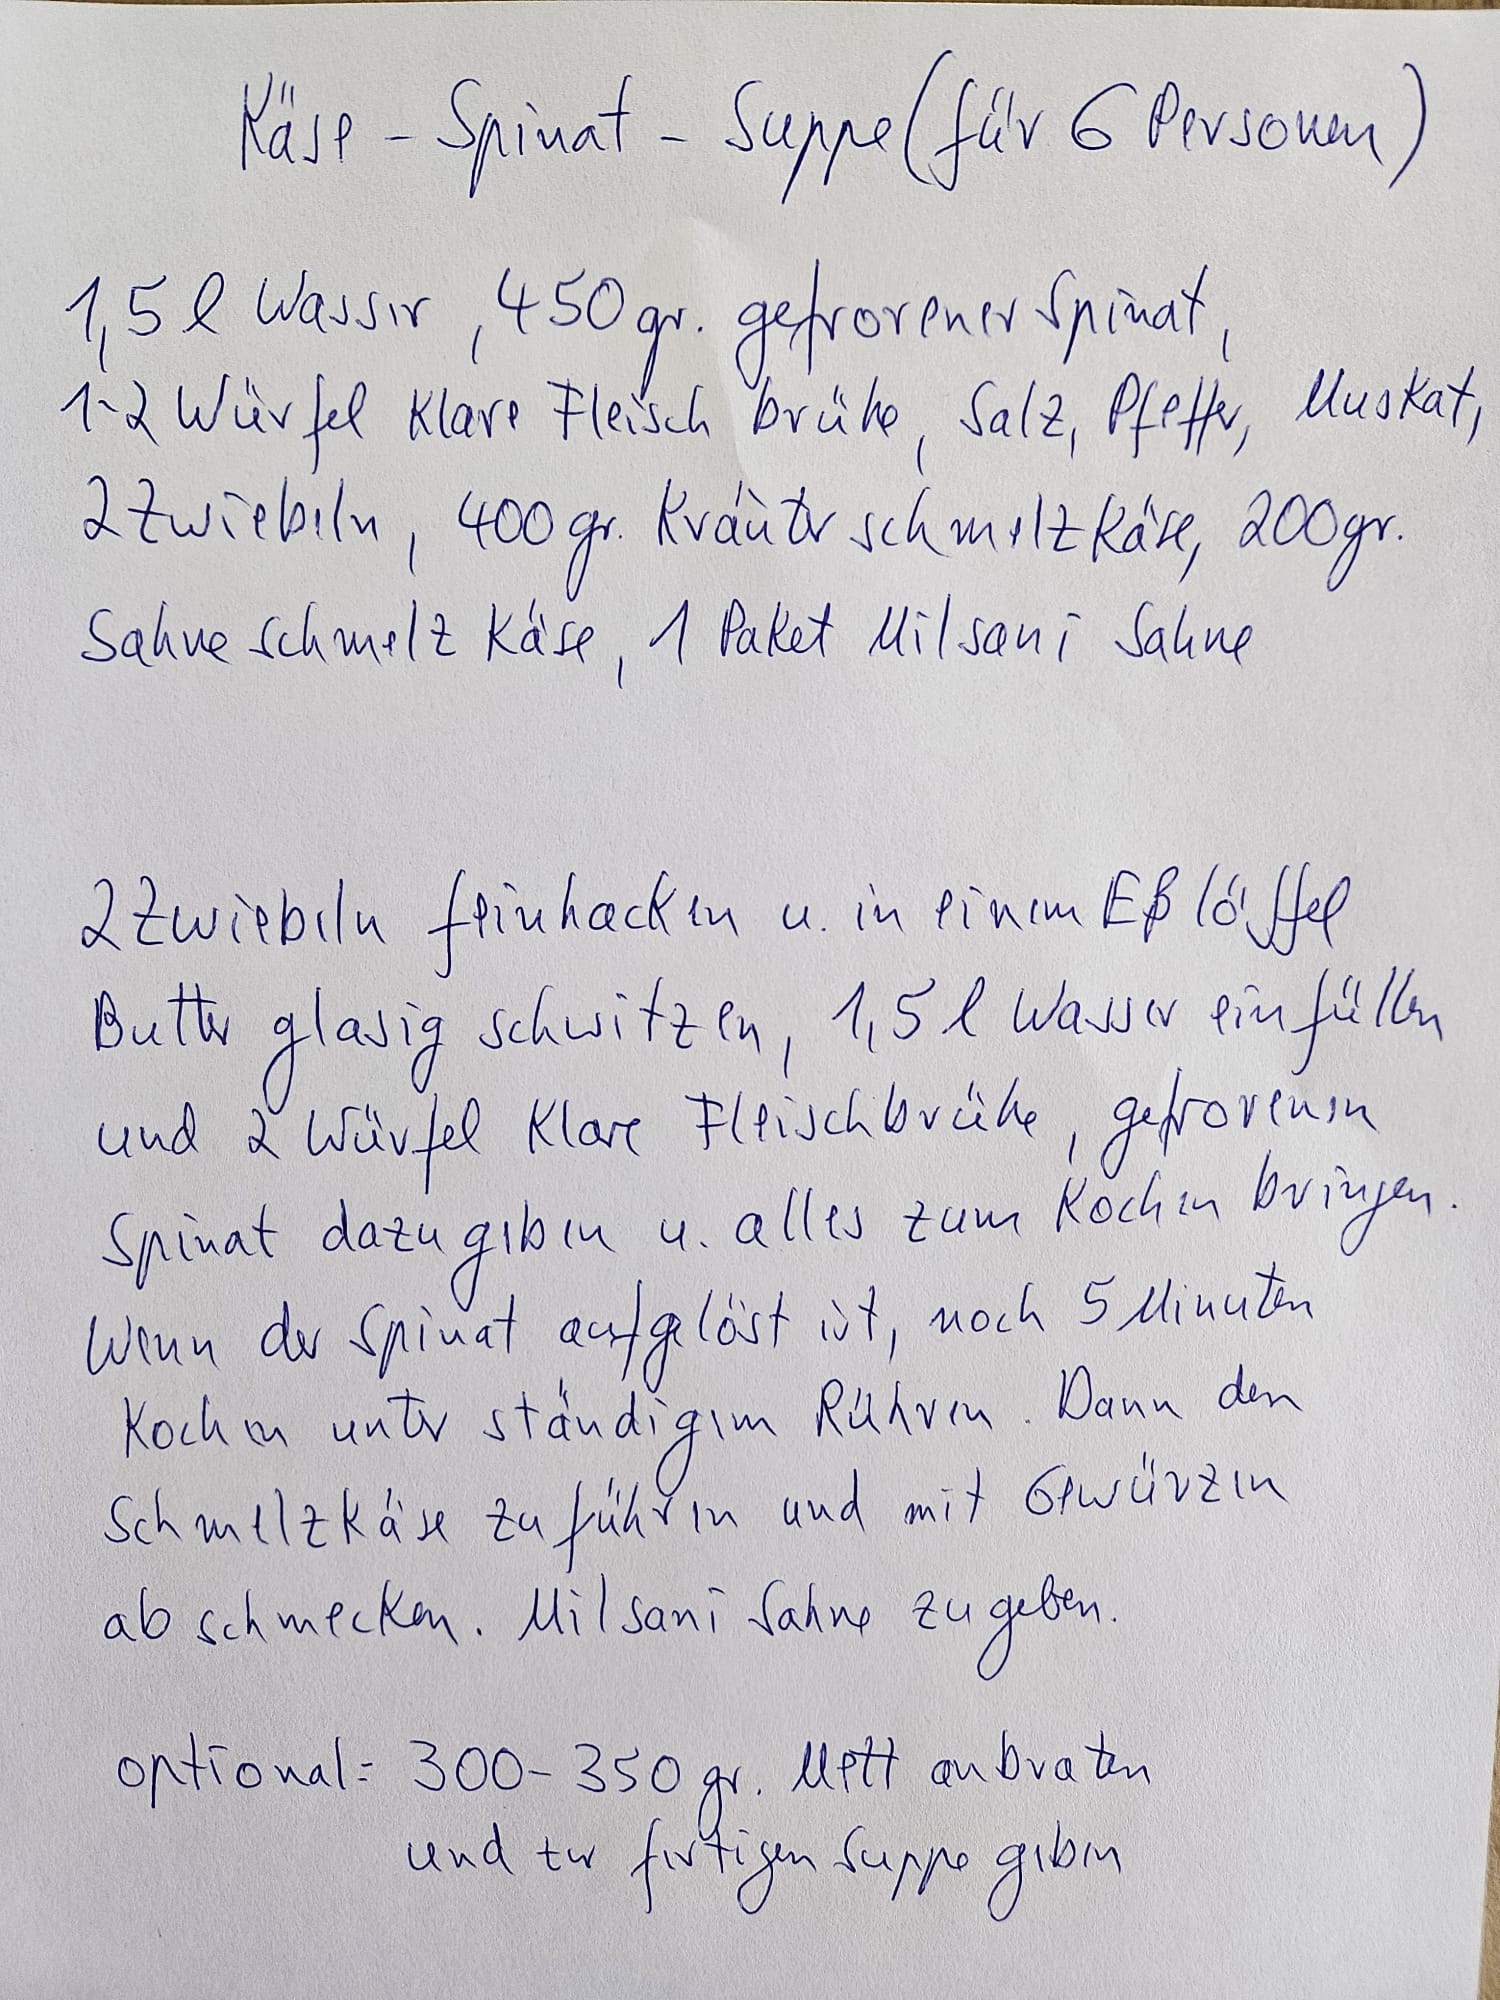 Käse - Spinat - Suppe (für 6 Personen)
1,5 l Wasser, 450 gr. gefrorener Spinat,
1-2 Würfel Klare Fleischbrühe, Salz, Pfeffer, Muskat,
2 Zwiebeln, 400 gr. Kräuterschmelzkäse, 200 gr.
Sahneschmelzkäse, 1 Paket Milsani Sahne
2 Zwiebeln feinhacken u. in einem Eßlöffel
Butter glasig schwitzen, 1,5 l Wasser einfüllen
und 2 Würfel Klare Fleischbrühe, gefrorenen
Spinat dazugeben u. alles zum Kochen bringen.
Wenn der Spinat aufgelöst ist, noch 5 Minuten
Kochen unter ständigem Rühren. Dann den
Schmelzkäse zuführen und mit Gewürzen
abschmecken. Milsani Sahne zugeben.
optional: 300-350 gr. Mett anbraten
und zur fertigen Suppe geben